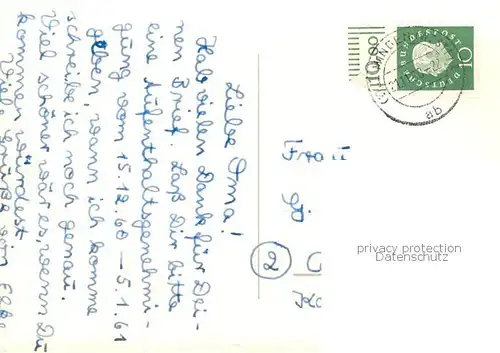 Liebe Oma!
Hab vielen Dank für Dei-
nen Brief. Laß Dir bitte
eine Aufenthaltsgenehmi-
gung vom 15.12.60 – 5.1.61
geben, wann ich komme
schreibe ich noch genau.
Viel schöner wär es, wenn Du
kommen würdest.
Viele Grüße von
DEUTSCHE BUNDESPOST
10
ab
Frau
2
privacy protection
Datenschutz